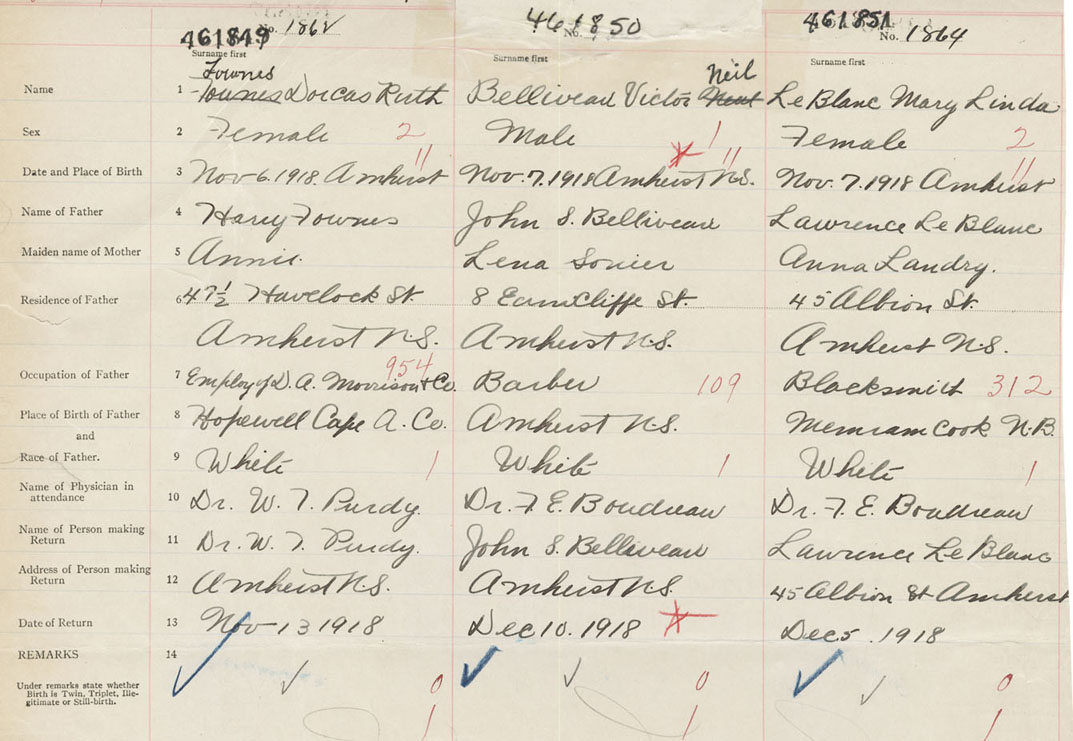 461849 No. 1862 461850 No. 461851 No. 1864
Surname first Surname first Surname first
Fownes Neil
Name 1 Townes Dorcas Ruth Belliveau Victor LeBlanc Mary Linda
Sex 2 Female 2 Male 1 Female 2
11 11 11
Date and Place of Birth 3 Nov 6. 1918. Amherst Nov. 7. 1918 Amherst N.S. Nov. 7. 1918 Amherst
Name of Father 4 Harry Fownes John S. Belliveau Lawrence Le Blanc
Maiden name of Mother 5 Annie. Lena Sonier Anna Landry.
Residence of Father 6 47½ Havelock St. 8 Earncliffe St. 45 Albion St.
Amherst N.S. Amherst N.S. Amherst N.S.
954
Occupation of Father 7 Employ of D. A. Morrison & Co. Barber 109 Blacksmith 312
Place of Birth of Father 8 Hopewell Cape A. Co. Amherst N.S. Memramcook N.B.
and
Race of Father. 9 White 1 White 1 White 1
Name of Physician in
attendance 10 Dr. W. T. Purdy. Dr. F. E. Boudreau Dr. F. E. Boudreau
Name of Person making
Return 11 Dr. W. T. Purdy. John S. Belliveau Lawrence Le Blanc
Address of Person making
Return 12 Amherst N.S. Amherst N.S. 45 Albion St Amherst
Date of Return 13 Nov 13 1918 Dec 10. 1918 Dec 5. 1918
REMARKS 14
Under remarks state whether 0 0 0
Birth is Twin, Triplet, Ille-
gitimate or Still-birth. 1 1 1